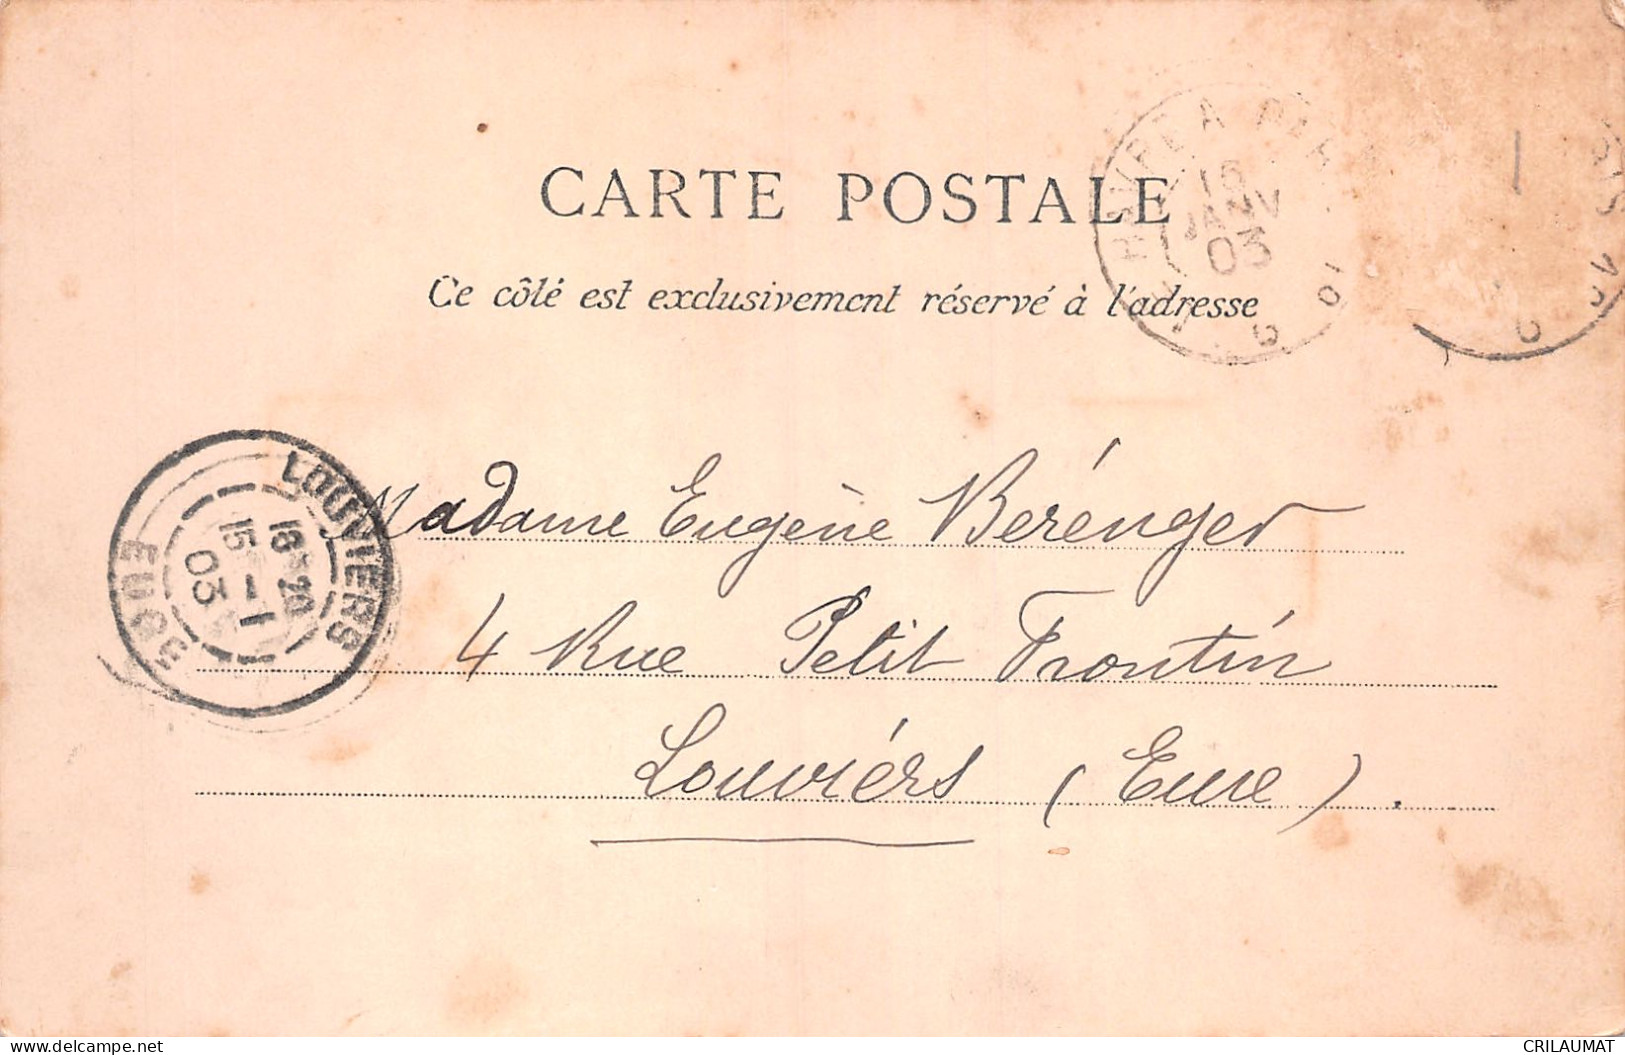 CARTE POSTALE
Ce côté est exclusivement réservé à l'adresse
15
JANV
03
LOUVIERS
18 20
15 - 1
03
EURE
Madame Eugène Berénger
4 Rue Petit Frontin
Louviérs (Eure).
delcampe.net
CRILAUMAT